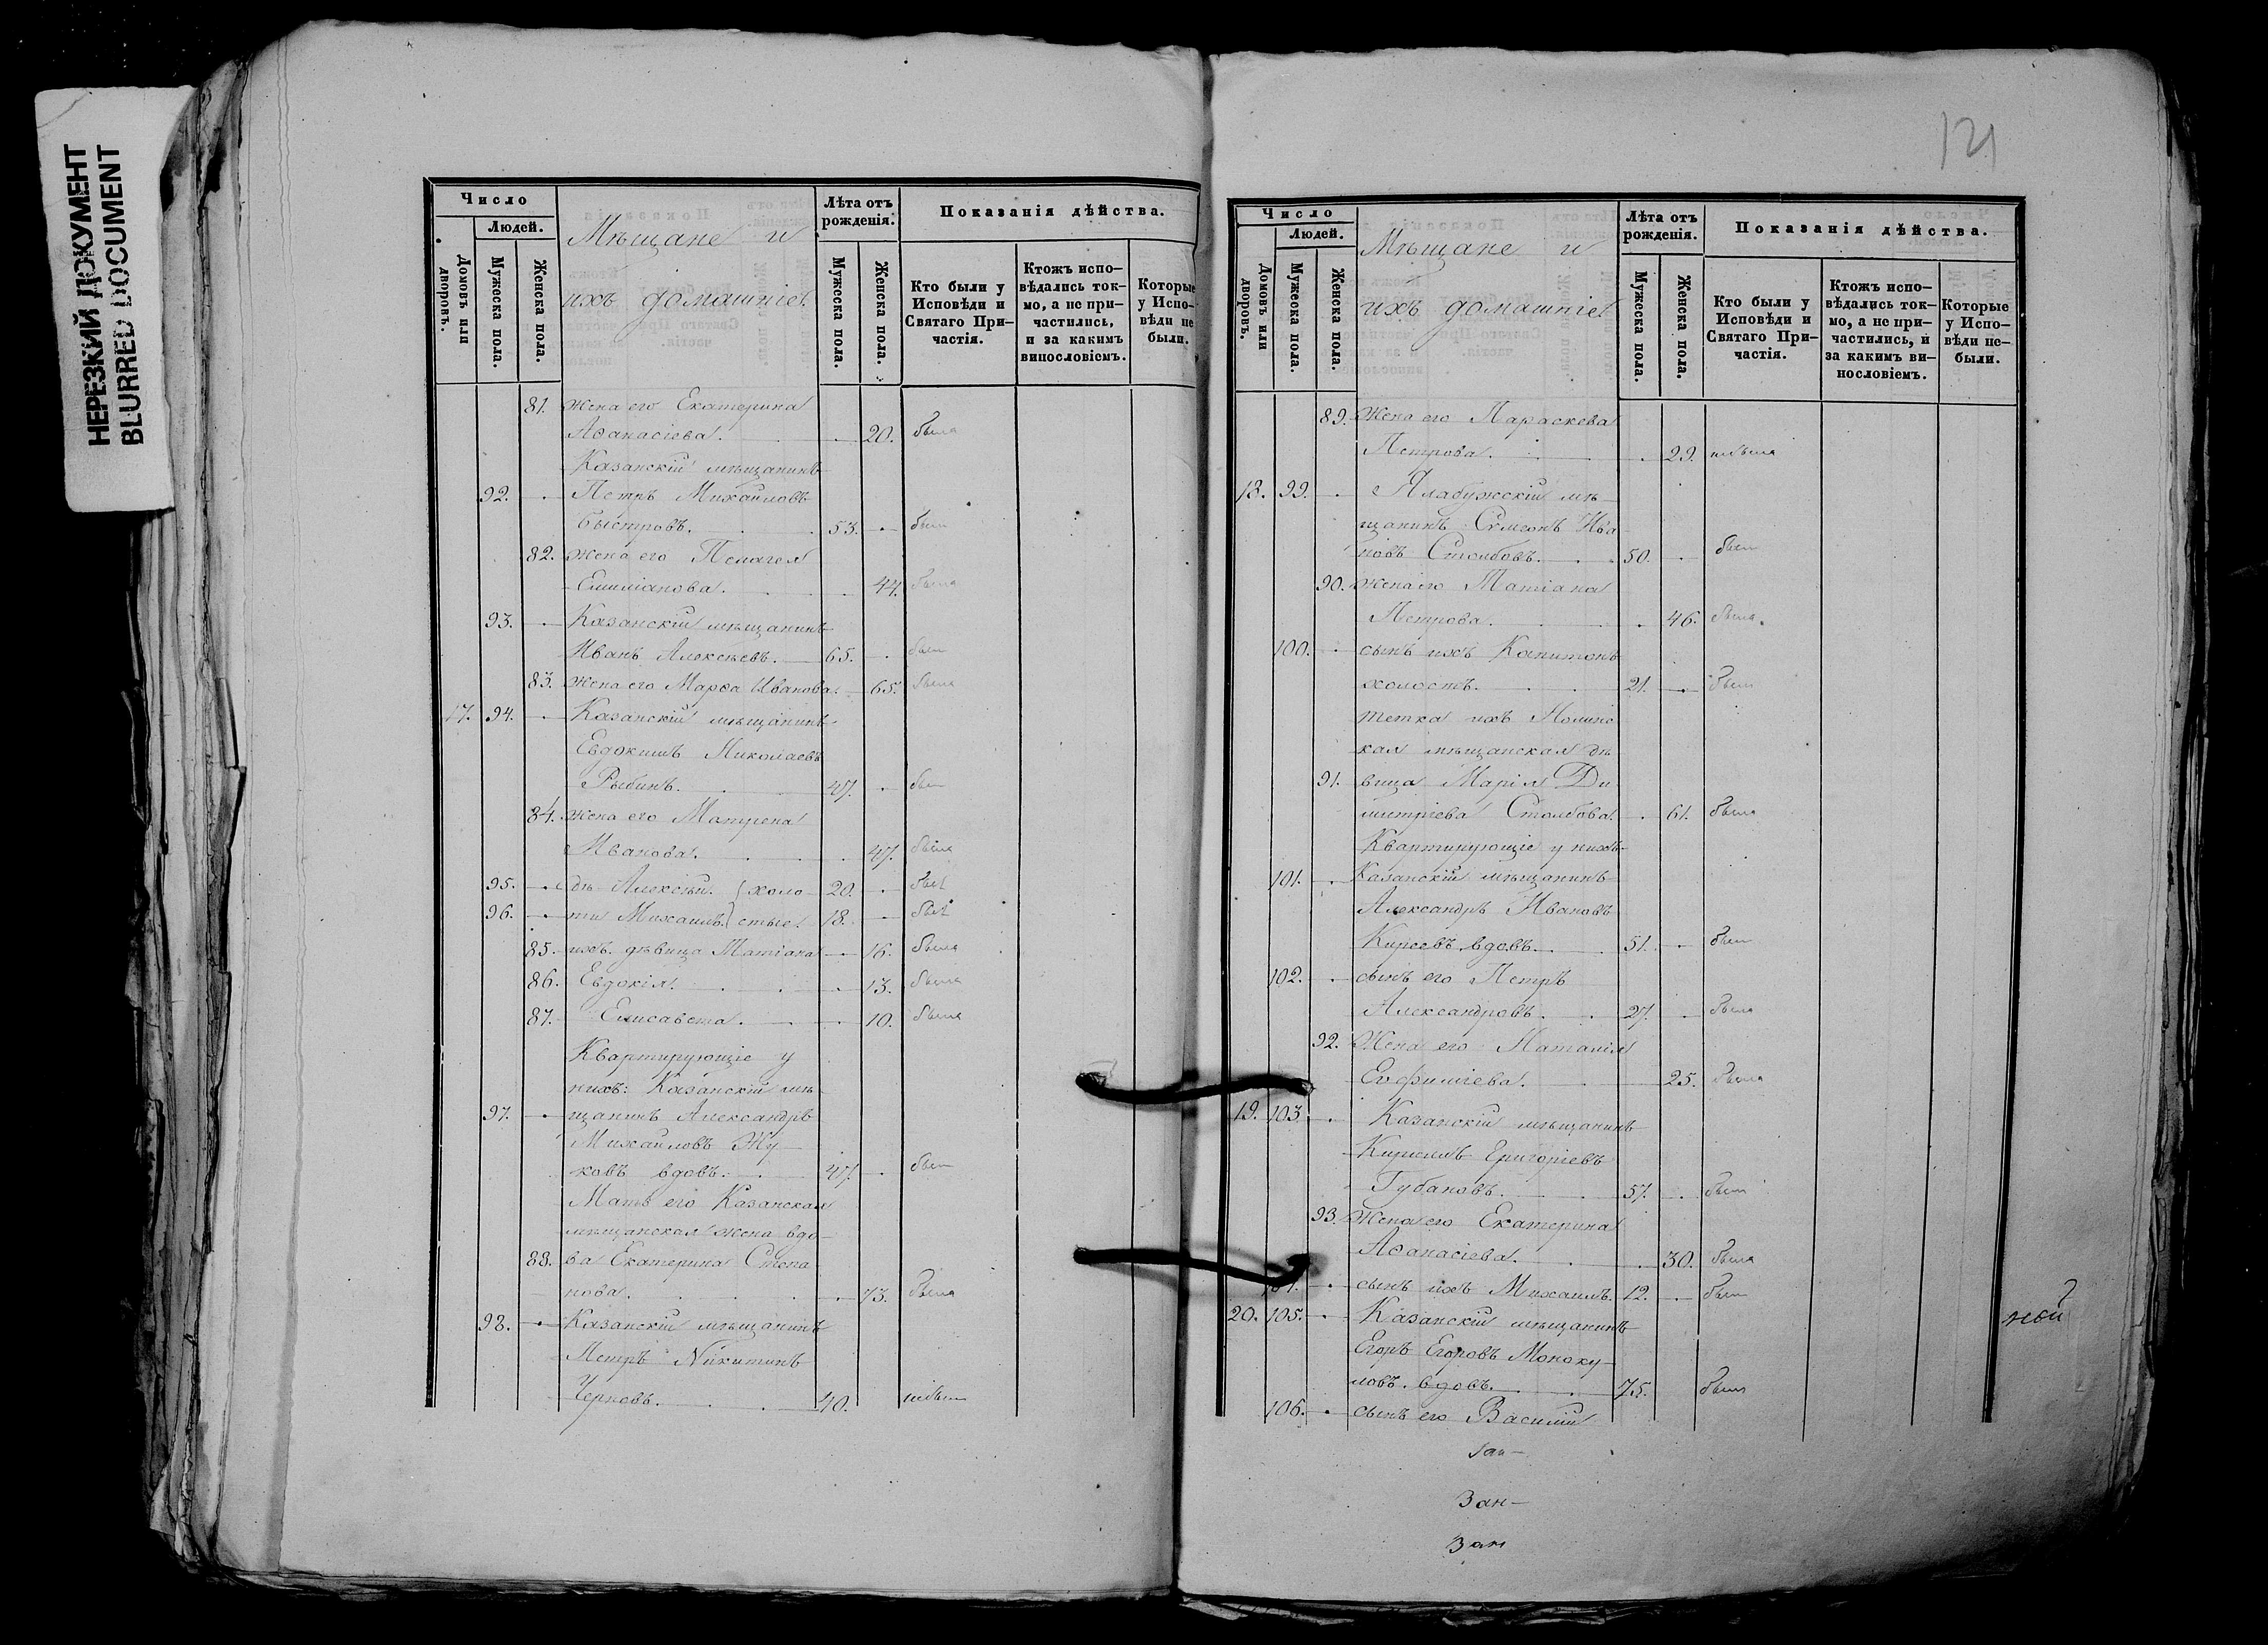 НЕРЕЗКИЙ ДОКУМЕНТ
BLURRED DOCUMENT
Число
Людей.
Домовъ или дворовъ.
Мужеска пола.
Женска пола.
Мѣщане и
ихъ домашніе
Лѣта отъ рожденія.
Мужеска пола.
Женска пола.
Показанія дѣйства.
Кто были у Исповѣди и Святаго При-частія.
Ктожъ испо-вѣдались ток-мо, а не при-частились, и за какимъ винословіемъ.
Которые у Испо-вѣди не были.
81. жена его Екатерина
Аѳанасіева. 20. была
Казанскій мѣщанинъ
92. Петръ Михайловъ
Быстровъ. 53. былъ
82. жена его Пелагея
Емиліанова. 44. была
93. Казанскій мѣщанинъ
Иванъ Алексѣевъ. 65. былъ
83. жена его Марѳа Иванова. 65. была
17. 94. Казанскій мѣщанинъ
Евдокимъ Николаевъ
Рыбинъ. 47. былъ
84. жена его Матрена
Иванова. 47. была
95. дѣ- Алексѣй. (холо- 20. былъ
96. ти Михаилъ.) стые. 18. былъ
85. ихъ. дѣвица Татіана 16. была
86. Евдокія. 13. была
87. Елисавета. 10. была
Квартирующіе у
нихъ: Казанскій мѣ-
97. щанинъ Александръ
Михайловъ Жу-
ковъ вдовъ. 47. былъ
Мать его Казанская
мѣщанская жена вдо-
88. ва Екатерина Степа
нова. 73. была
98. Казанскій мѣщанинъ
Петръ Никитинъ
Черновъ. 40. небылъ
121
Число
Людей.
Домовъ или дворовъ.
Мужеска пола.
Женска пола.
Мѣщане и
ихъ домашніе
Лѣта отъ рожденія.
Мужеска пола.
Женска пола.
Показанія дѣйства.
Кто были у Исповѣди и Святаго При-частія.
Ктожъ испо-вѣдались ток-мо, а не при-частились, и за какимъ ви-нословіемъ.
Которые у Испо-вѣди не-были.
89. Жена его Параскева
Петрова. 29. небыла
18. 99. Алабужскій мѣ-
щанинъ Сѵмеонъ Ива
новъ Столбовъ. 50. былъ
90. жена его Татіана
Петрова. 46. была
100. сынъ ихъ Капитонъ
холостъ. 21. былъ
тетка ихъ
кая мѣщанская дѣ
91. вица Марія Ди
митріева Столбова. 61. была
Квартирующіе у нихъ
101. Казанскій мѣщанинъ
Александръ Ивановъ
Киреевъ вдовъ. 51. былъ
102. сынъ его Петръ
Александровъ. 27. была
92. Жена его Наталія
Евфиміева. 25. была
19. 103. Казанскій мѣщанинъ
Кириллъ Григоріевъ
Губановъ. 57. былъ
93. Жена его Екатерина
Аѳанасіева. 30. была
104. сынъ ихъ Михаилъ. 12. былъ
20. 105. Казанскій мѣщанинъ
Егоръ Егоровъ Моноку-
ловъ. вдовъ. 75. былъ
106. сынъ его Василій
ной
Зан-
Зан